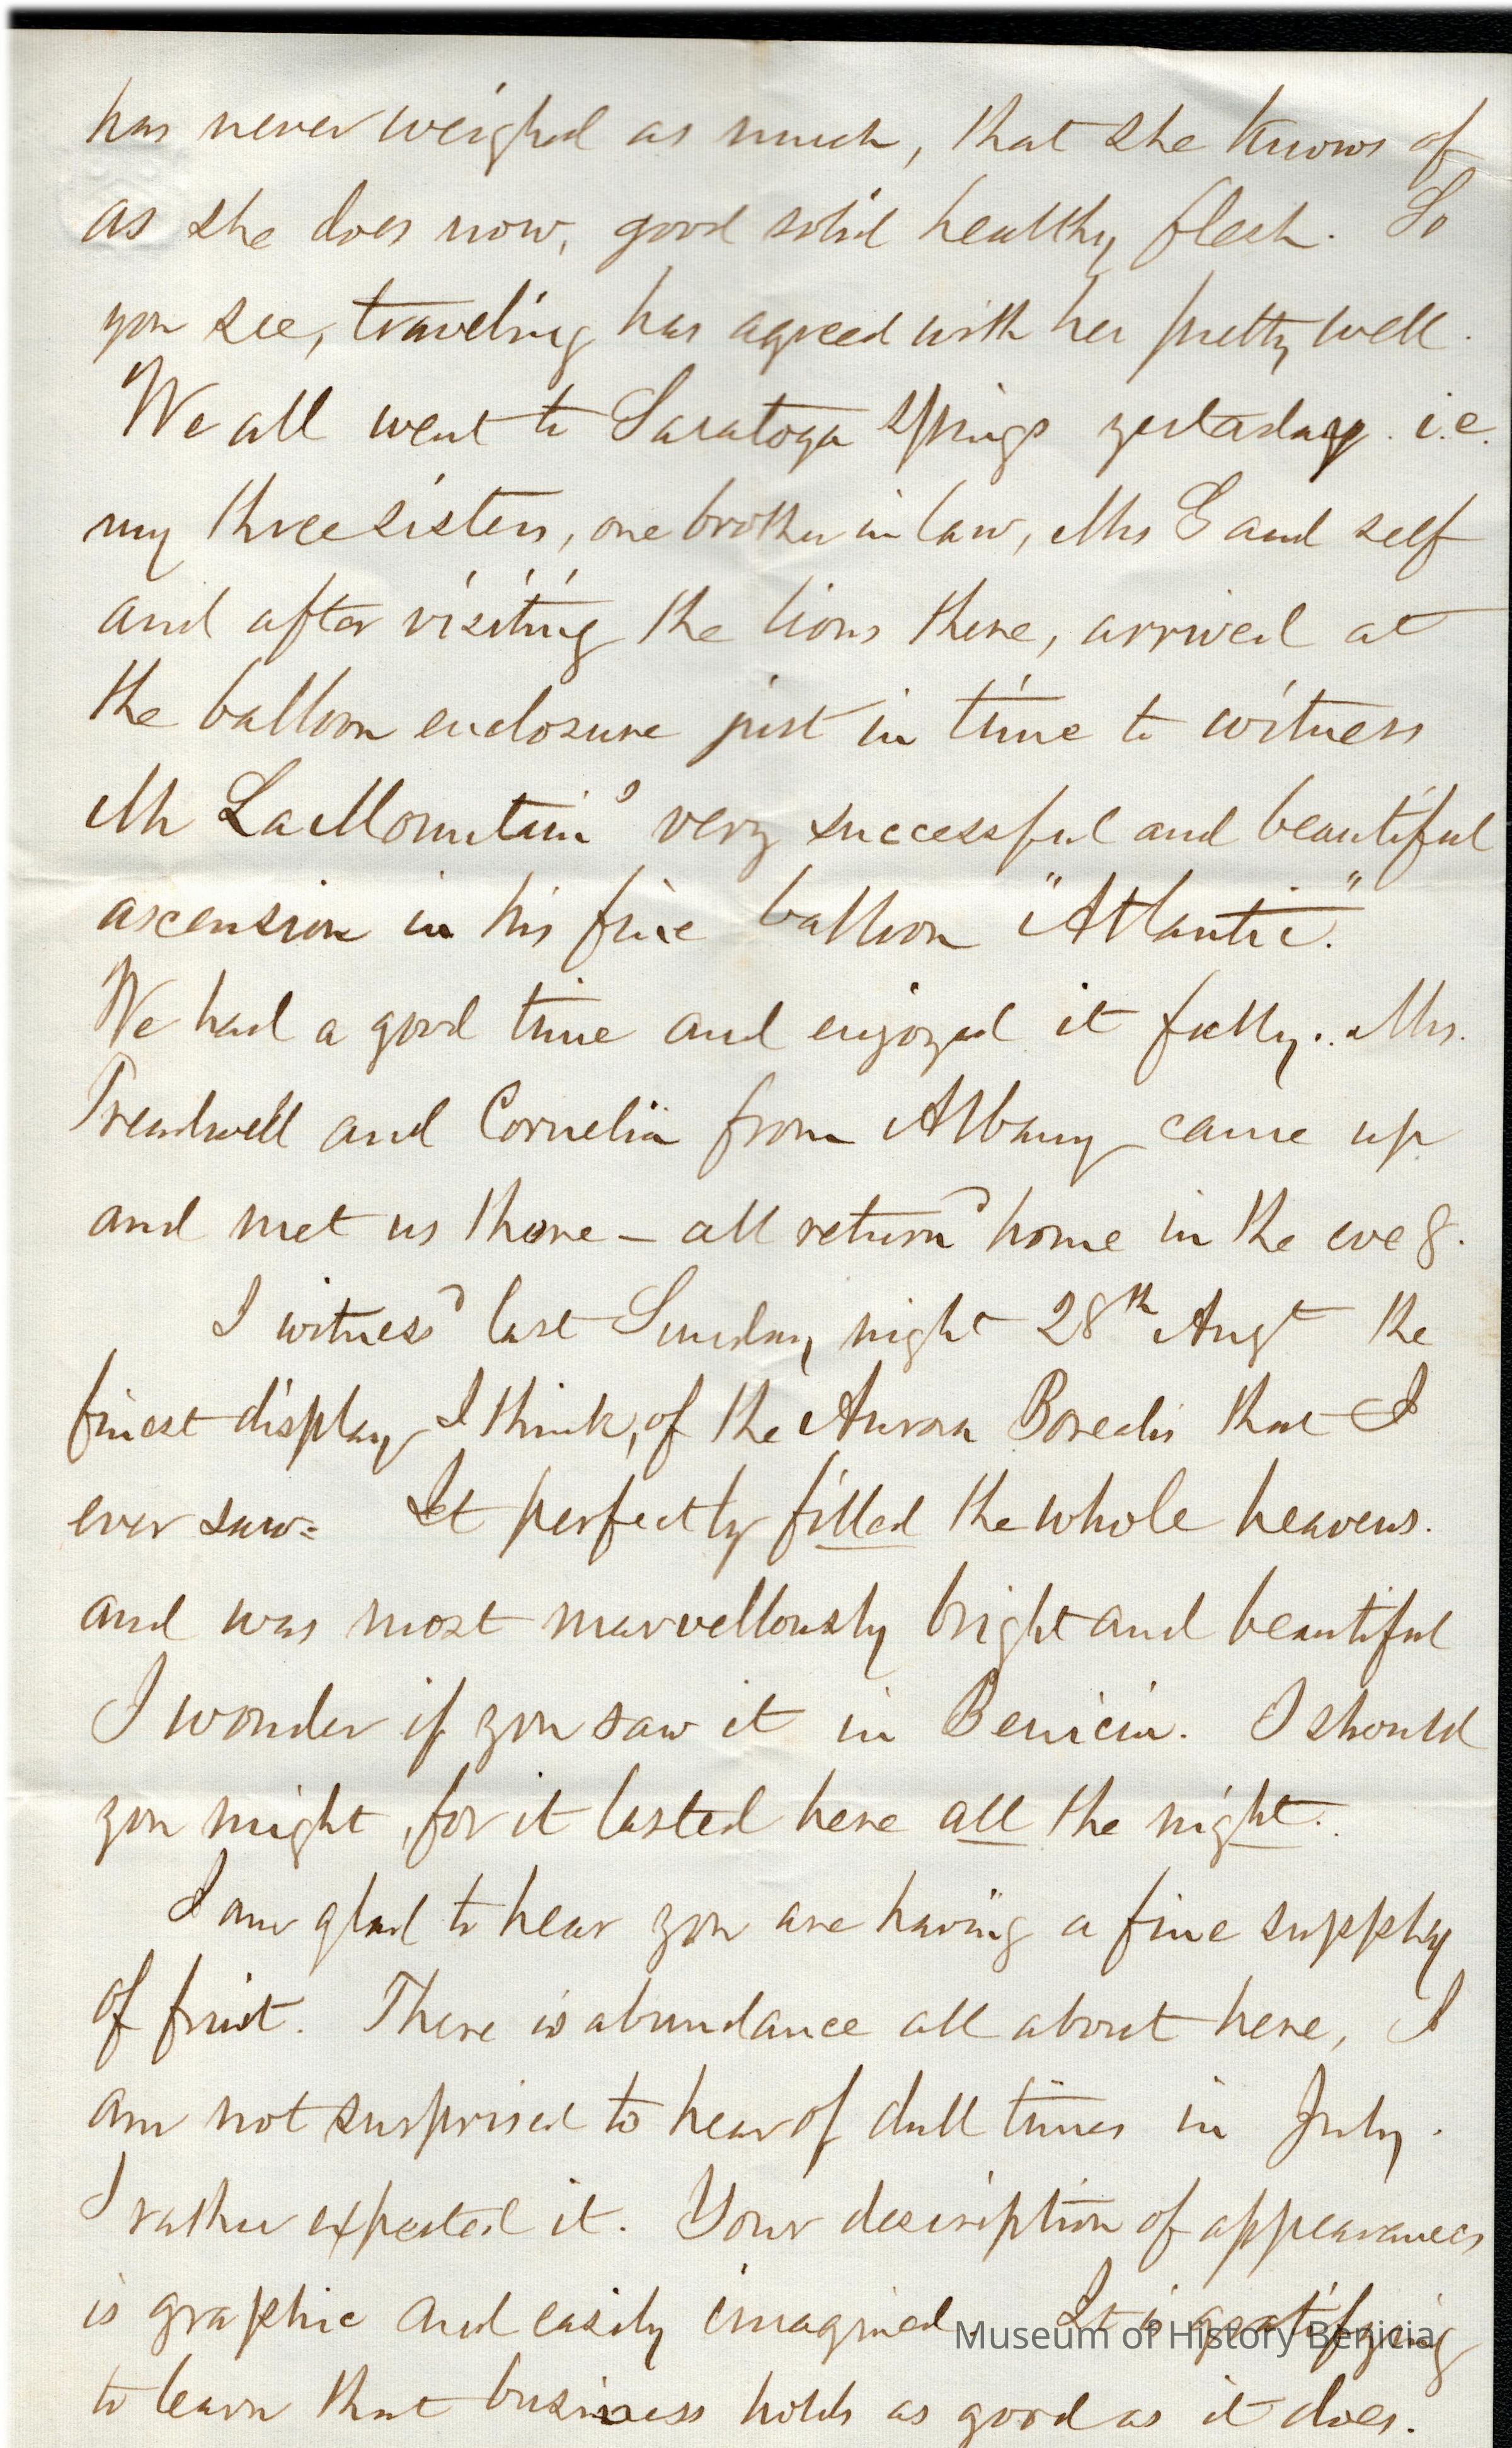 has never weighed as much, that she knows of
as she does now, good solid healthy flesh. So
you see, traveling has agreed with her pretty well.
We all went to Saratoga Springs yesterday. i.e.
my three sisters, one brother in law, Mrs G and self
and after visiting the lions there, arrived at
the balloon enclosure just in time to witness
Mr LaMountain's very successful and beautiful
ascension in his fine balloon "Atlantic."
We had a good time and enjoyed it fully. Mrs.
Treadwell and Cornelia from Albany came up
and met us there – all return'd home in the eveg.
I witness'd last Sunday night 28th Augt the
finest display, I think, of the Aurora Borealis that I
ever saw= It perfectly filled the whole heavens.
and was most marvellously bright and beautiful
I wonder if you saw it in Benicia. I should
you might, for it lasted here all the night.
I am glad to hear you are having a fine supply
of fruit. There is abundance all about here, I
am not surprised to hear of dull times in July.
I rather expected it. Your description of appearances
is graphic and easily imagined. It is gratifying
to learn that business holds as good as it does.
Museum of History Benicia